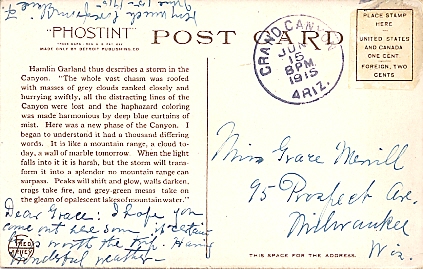 "PHOSTINT"
MADE ONLY BY DETROIT PUBLISHING CO.
POST CARD
GRAND CANYON
JUN
15
8PM
1915
ARIZ.
PLACE STAMP
HERE
UNITED STATES
AND CANADA
ONE CENT
FOREIGN, TWO
CENTS
Hamlin Garland thus describes a storm in the
Canyon. "The whole vast chasm was roofed
with masses of grey clouds ranked closely and
hurrying swiftly, all the distracting lines of the
Canyon were lost and the haphazard coloring
was made harmonious by deep blue curtains of
mist. Here was a new phase of the Canyon. I
began to understand it had a thousand differing
words. It is like a mountain range, a cloud to-
day, a wall of marble tomorrow. When the light
falls into it it is harsh, but the storm will trans-
form it into a splendor no mountain range can
surpass. Peaks will shift and glow, walls darken,
crags take fire, and grey-green mesas take on
the gleam of opalescent lakes of mountain water."
Dear Grace: I hope you
come out here soon it certainly
worth the trip. Having
wonderful weather
Miss Grace Merrill
95 Prospect Ave.
Milwaukee
Wis.
THIS SPACE FOR THE ADDRESS.